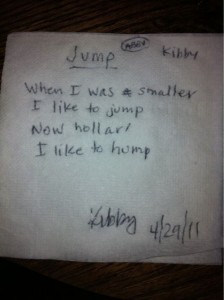 Jump Kibby
When I was a smaller
I like to jump
Now hollar!
I like to hump
Kibby 4/29/11